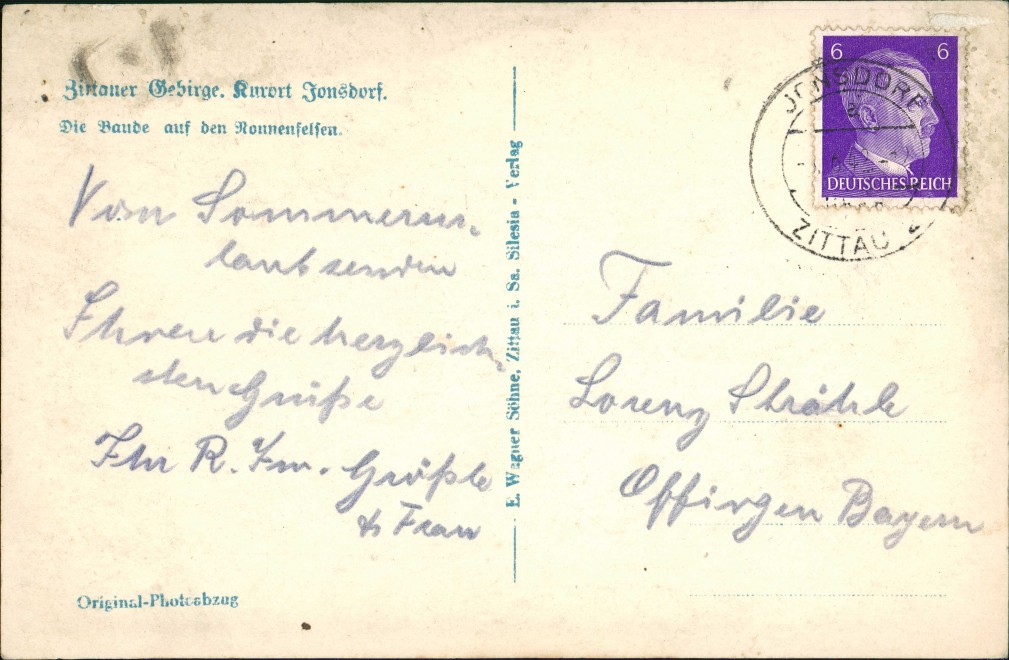 Zittauer Gebirge. Kurort Jonsdorf.
Die Baude auf den Nonnenfelsen.
Vom Sommerur-
laub senden
Ihnen die herzlich-
sten Grüße
Ihr R. Größle
& Frau
Original-Photoabzug
E. Wagner Söhne, Zittau i. Sa. Silesia-Verlag
6 6
DEUTSCHES REICH
JONSDORF
a
ZITTAU 2
Familie
Lorenz Strähle
Offingen Bayern